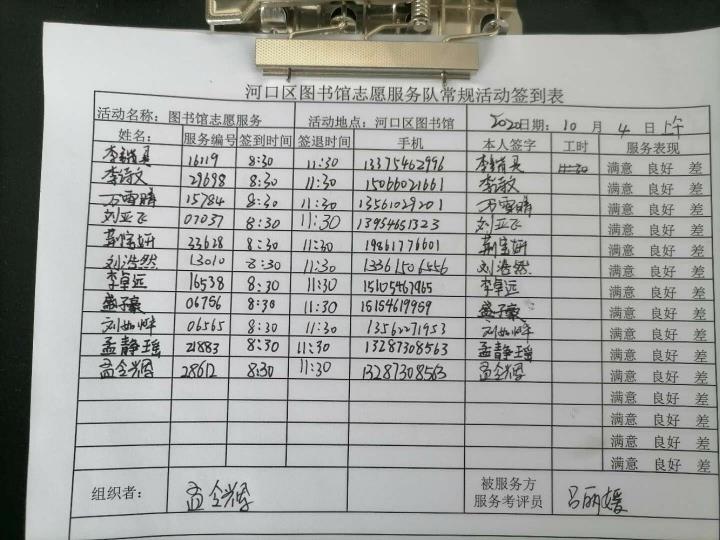 河口区图书馆志愿服务队常规活动签到表
活动名称：图书馆志愿服务 活动地点：河口区图书馆 2020日期：10 月 4 日 上午
姓名： 服务编号 签到时间 签退时间 手机 本人签字 工时 服务表现
16119 8:30 11:30 13375462996 11:30 满意 良好 差
李诗文 29698 8:30 11:30 15066021661 李诗文 满意 良好 差
万雪晴 15784 8:30 11:30 13561029201 万雪晴 满意 良好 差
刘亚飞 07037 8:30 11:30 13954651323 刘亚飞 满意 良好 差
荆宝妍 33628 8:30 11:30 19861776601 荆宝妍 满意 良好 差
刘浩然 13010 8:30 11:30 13361506556 刘浩然 满意 良好 差
李卓远 16538 8:30 11:30 15105467965 李卓远 满意 良好 差
盖子豪 06756 8:30 11:30 15154619959 盖子豪 满意 良好 差
06565 8:30 11:30 13562271953 满意 良好 差
孟静瑶 21883 8:30 11:30 13287308563 孟静瑶 满意 良好 差
孟令辉 28612 8:30 11:30 13287308563 孟令辉 满意 良好 差
满意 良好 差
满意 良好 差
满意 良好 差
满意 良好 差
组织者： 孟令辉 被服务方 吕丽媛
服务考评员